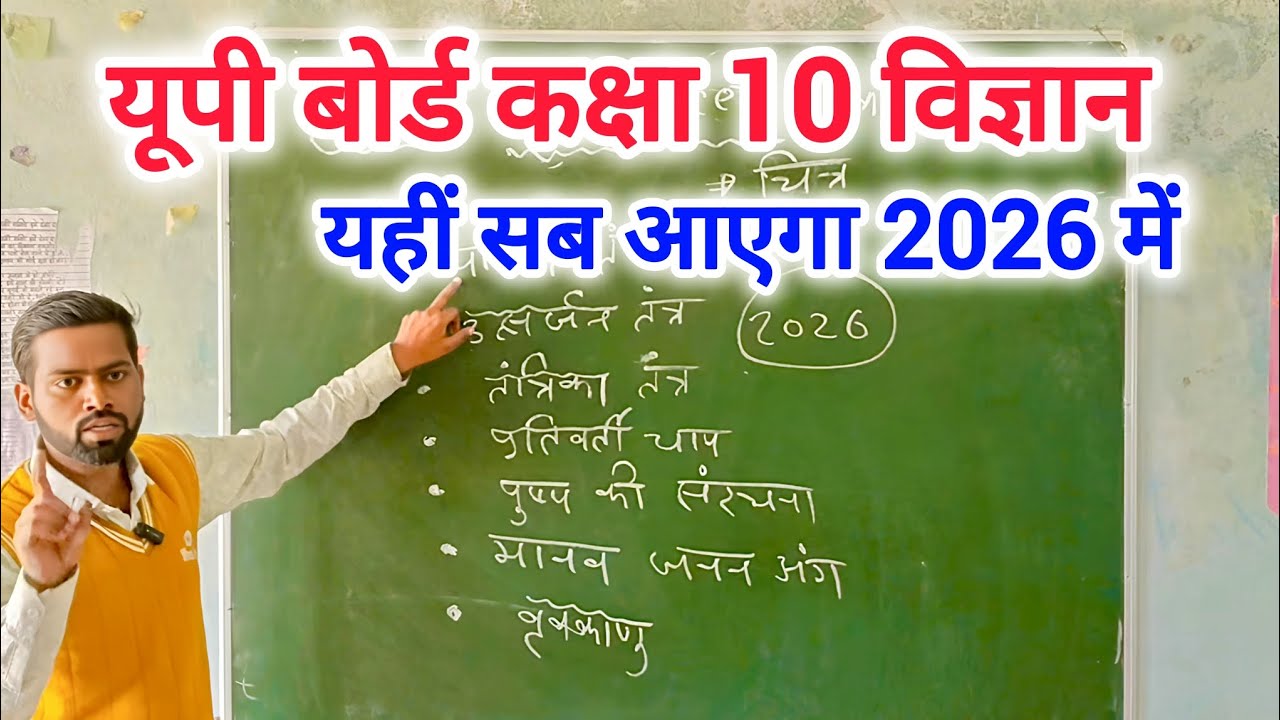 यूपी बोर्ड कक्षा 10 विज्ञान
→ चित्र
यहीं सब आएगा 2026 में
उत्सर्जन तंत्र
2026
• तंत्रिका तंत्र
• प्रतिवर्ती चाप
• पुष्प की संरचना
• मानव जनन अंग
• वृक्काणु